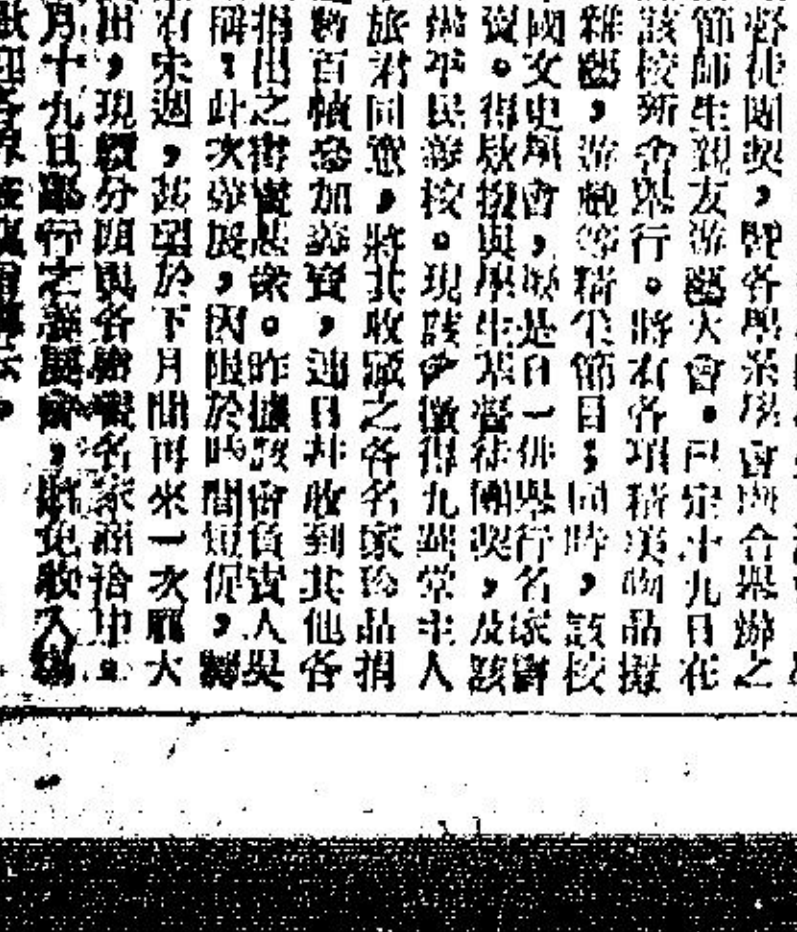 督徒團契，暨各學系學會聯合舉辦之
節師生親友游藝大會。已定十九日在
該校新舍舉行。將有各項精美物品擬
雜藝，游戲等精采節目；同時，該校
國文史學會，於是日一併舉行名家書
賣。得款撥與學生基督徒團契，及該
辦平民義校。現該會徵得九關堂主人
旅君同意，將其收藏之各名家珍品捐
數百幀參加義賣，連日并收到其他各
捐出之書畫甚衆。昨據該會負責人吳
稱：此次義展，因限於時間短促，
有未週，甚望於下月間再來一次擴大
出，現續分頭與各書畫名家商洽中。
月十九日舉行之義展會，將免收入場
歡迎各界